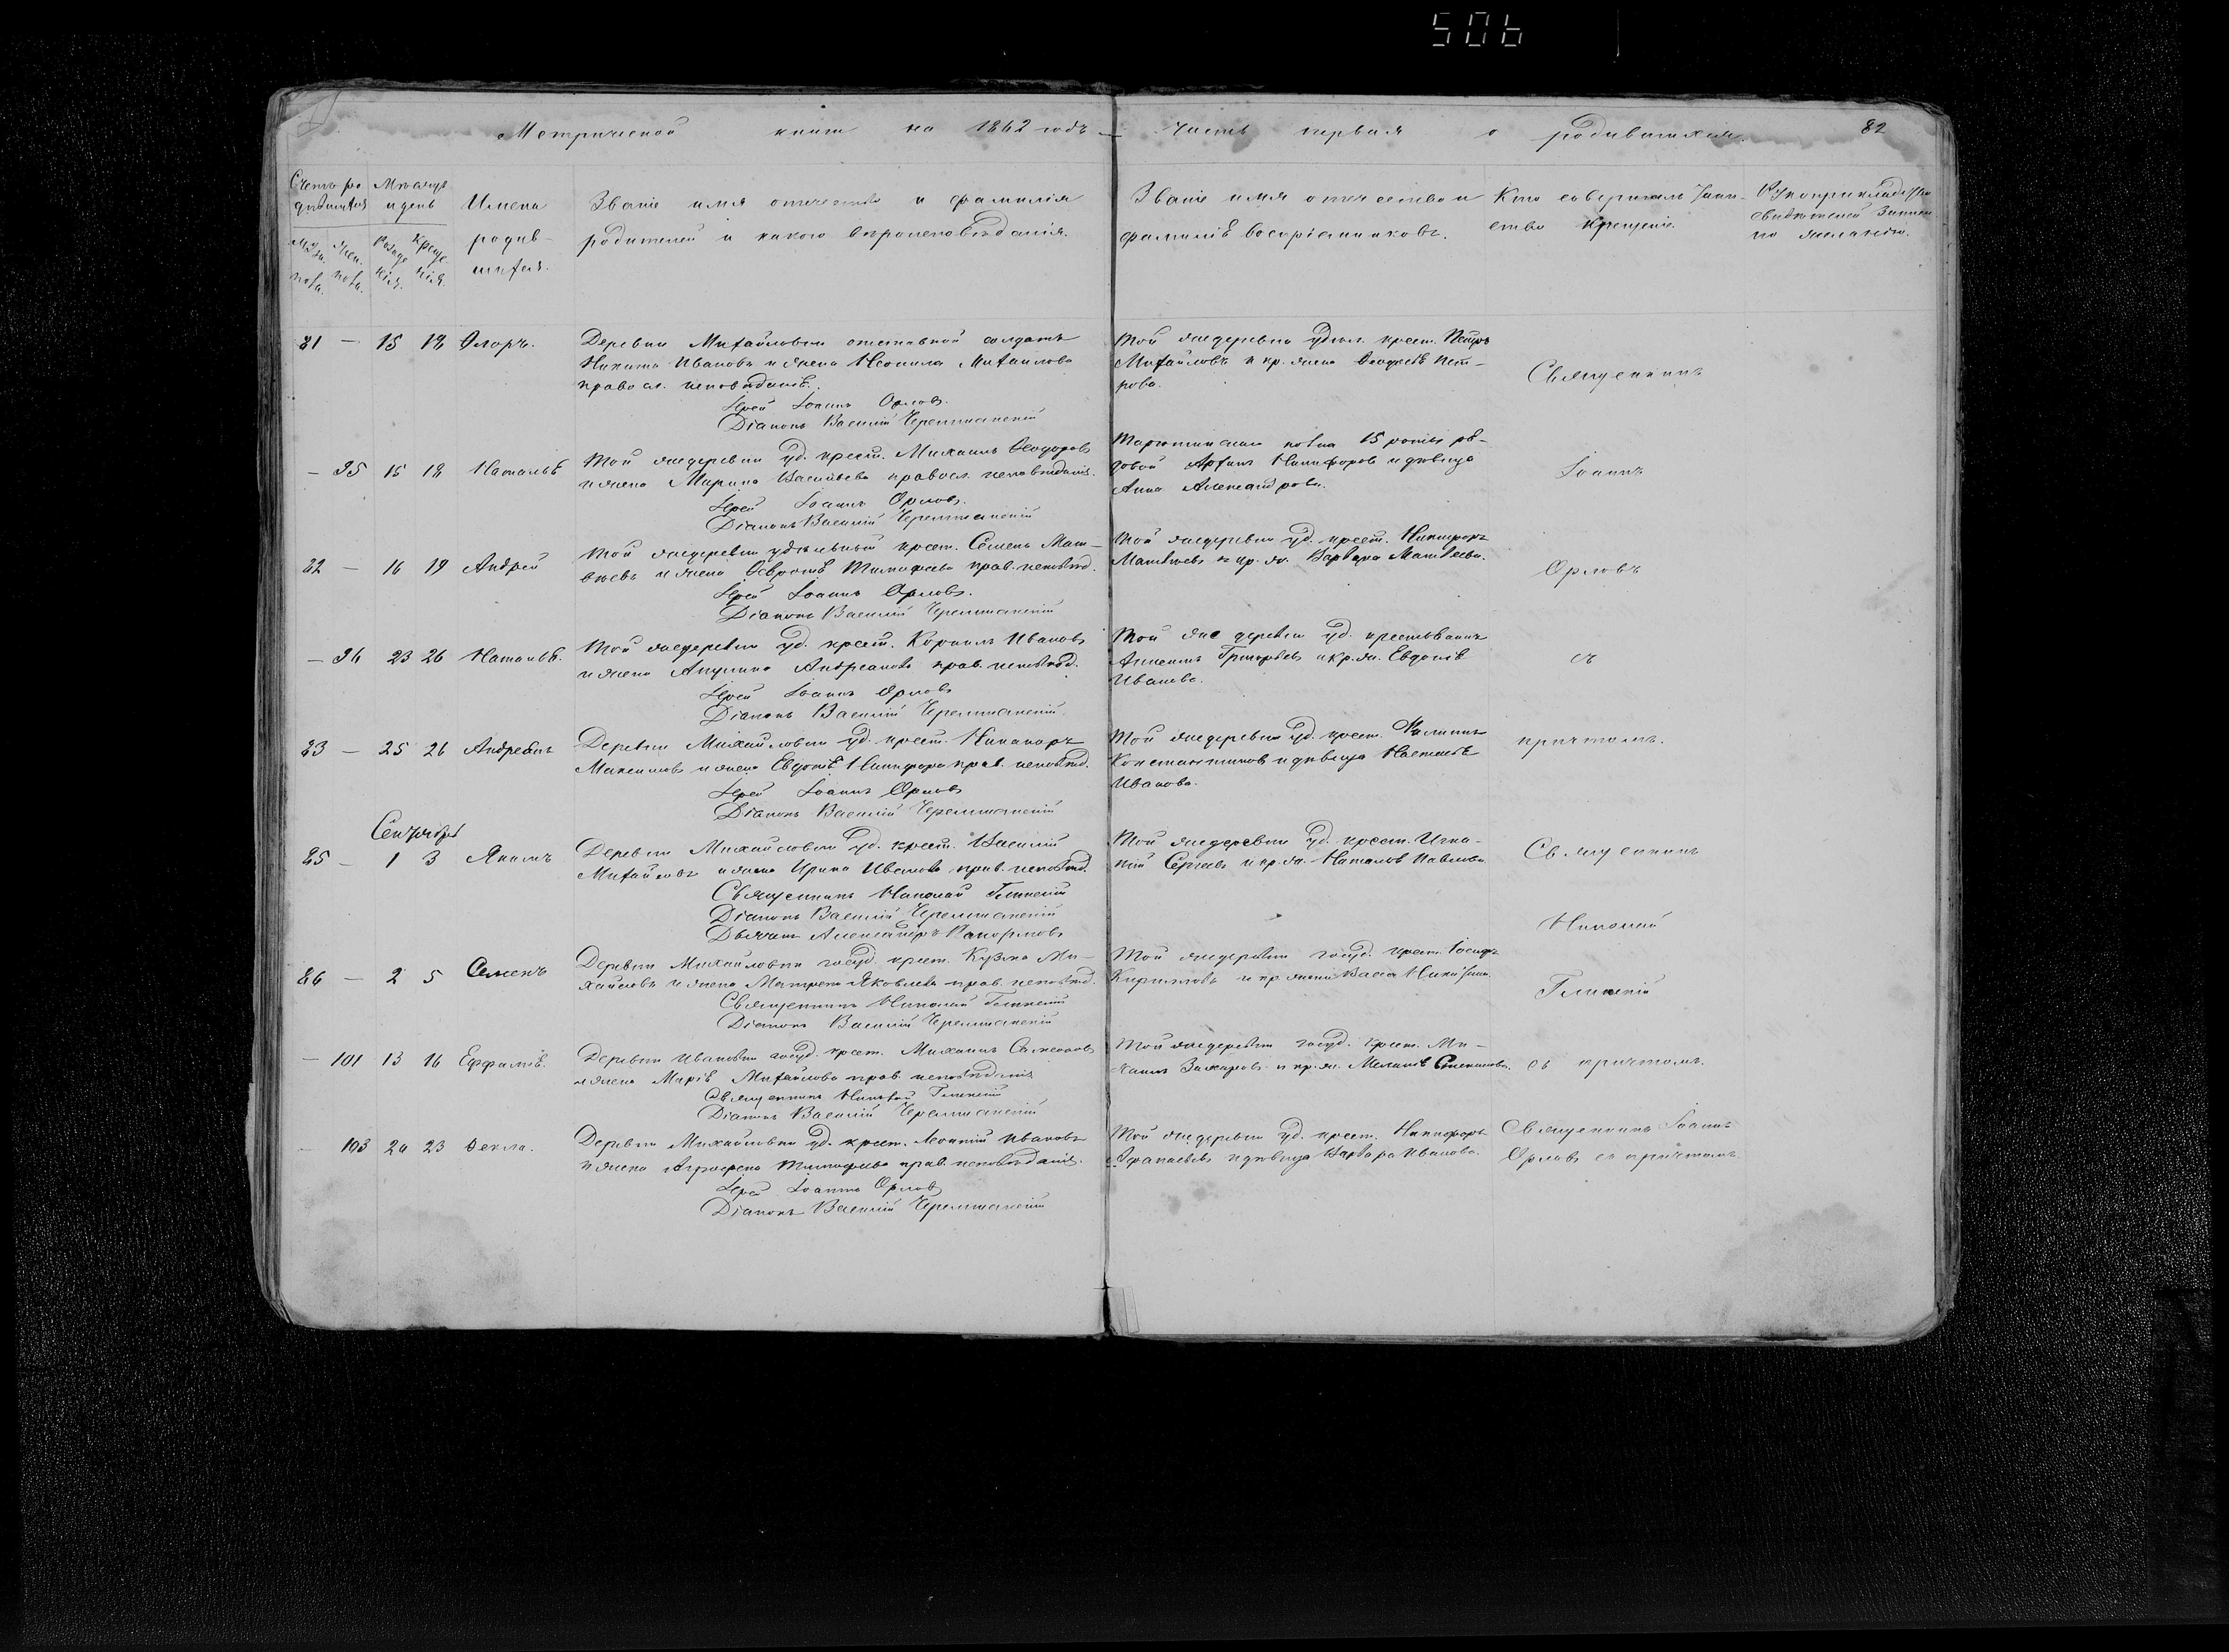 506
Метрической книги на 1862 годъ — часть первая о родившихся.
82
Счетъ ро
дившихся
Мѣсяцъ
и день
Имена
родив-
шихся.
Муж.
пола.
Жен.
пола.
Рожде
нія.
Креще
нія.
Званіе имя отчество и фамилія
родителей и какого вѣроисповѣданія.
Званіе имя отчество и
фамилія воспріемниковъ.
Кто совершалъ таин-
ство крещенія.
Рукоприкладство
свидѣтелей записи
по желанію.
81 — 15 18 Флоръ.
Деревни Михайловки отставной солдатъ
Никита Ивановъ и жена Неонила Михайлова
правосл. исповѣданія.
Іерей Іоаннъ Орловъ.
Діаконъ Василій Черемшанскій
Той же деревни удѣл. крест. Петръ
Михайловъ и кр. жена Ѳеодосія Пет-
рова.
Священникъ
— 95 15 18 Наталья
Той же деревни уд. крест. Михаилъ Ѳеодоровъ
и жена Марина Васильева правосл. исповѣданія.
Іерей Іоаннъ Орловъ.
Діаконъ Василій Черемшанскій
полка 15 роты ря-
довой Никифоровъ и дѣвица
Анна Александрова.
Іоаннъ
82 — 16 19 Андрей
Той же деревни удѣльный крест. Семенъ Мат-
вѣевъ и жена Тимофеева прав. исповѣд.
Іерей Іоаннъ Орловъ.
Діаконъ Василій Черемшанскій
Той же деревни уд. крест. Никифоръ
Матвѣевъ и кр. ж. Варвара Матвѣева.
Орловъ
— 96 23 26 Наталья.
Той же деревни уд. крест. Корнилъ Ивановъ
и жена Акулина Андреанова прав. исповѣд.
Іерей Іоаннъ Орловъ
Діаконъ Василій Черемшанскій.
Той же деревни уд. крестьянинъ
Григорьевъ и кр. ж. Евдокія
Иванова.
съ
83 — 25 26 Андреянъ
Деревни Михайловки уд. крест. Никаноръ
Максимовъ и жена Евдокія Никифорова прав. исповѣд.
Іерей Іоаннъ Орловъ
Діаконъ Василій Черемшанскій
Той же деревни уд. крест. Филиппъ
Константиновъ и дѣвица Настасья
Иванова.
причтомъ.
Сентябрь
85 — 1 3 Якимъ
Деревни Михайловки уд. крест. Василій
Михайловъ и жена Ирина Иванова прав. исповѣд.
Священникъ Николай Глинскій
Діаконъ Василій Черемшанскій
Дьячекъ Александръ
Той же деревни уд. крест. Игна-
тій Сергеевъ и кр. ж. Наталья Павлова
Священникъ
Николай
86 — 2 5 Семенъ
Деревни Михайловки госуд. крест. Кузма Ми-
хайловъ и жена Матрена Яковлева прав. исповѣд.
Священникъ Николай Глинскій
Діаконъ Василій Черемшанскій
Той же деревни госуд. крест. Іосифъ
Кириловъ и кр. жена Васса Никитина.
Глинскій
— 101 13 16 Евфалія.
Деревни Ивановки госуд. крест. Михаилъ Самсоновъ
и жена Марія Михайлова прав. исповѣданія
Священникъ Николай Глинскій
Діаконъ Василій Черемшанскій
Той же деревни госуд. крест. Ми-
хаилъ Захаровъ и кр. ж. Меланія Степанова.
съ причтомъ.
— 103 20 23 Ѳекла.
Деревни Михайловки уд. крест. Леонтій Ивановъ
и жена Агрофена Тимофеева прав. исповѣданія.
Іерей Іоаннъ Орловъ
Діаконъ Василій Черемшанскій
Той же деревни уд. крест. Никифоръ
Афанасьевъ и дѣвица Варвара Иванова.
Священникъ Іоаннъ
Орловъ съ причтомъ.